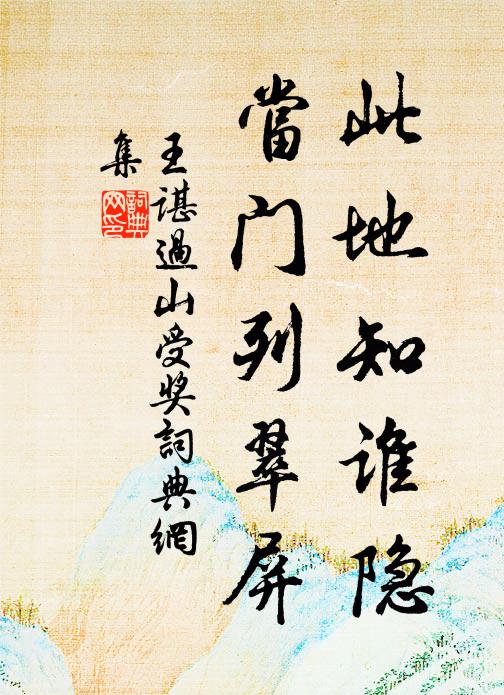 此地知谁隐
當门列翠屏
王諶過山受奖詞典網
集
詞典
网印